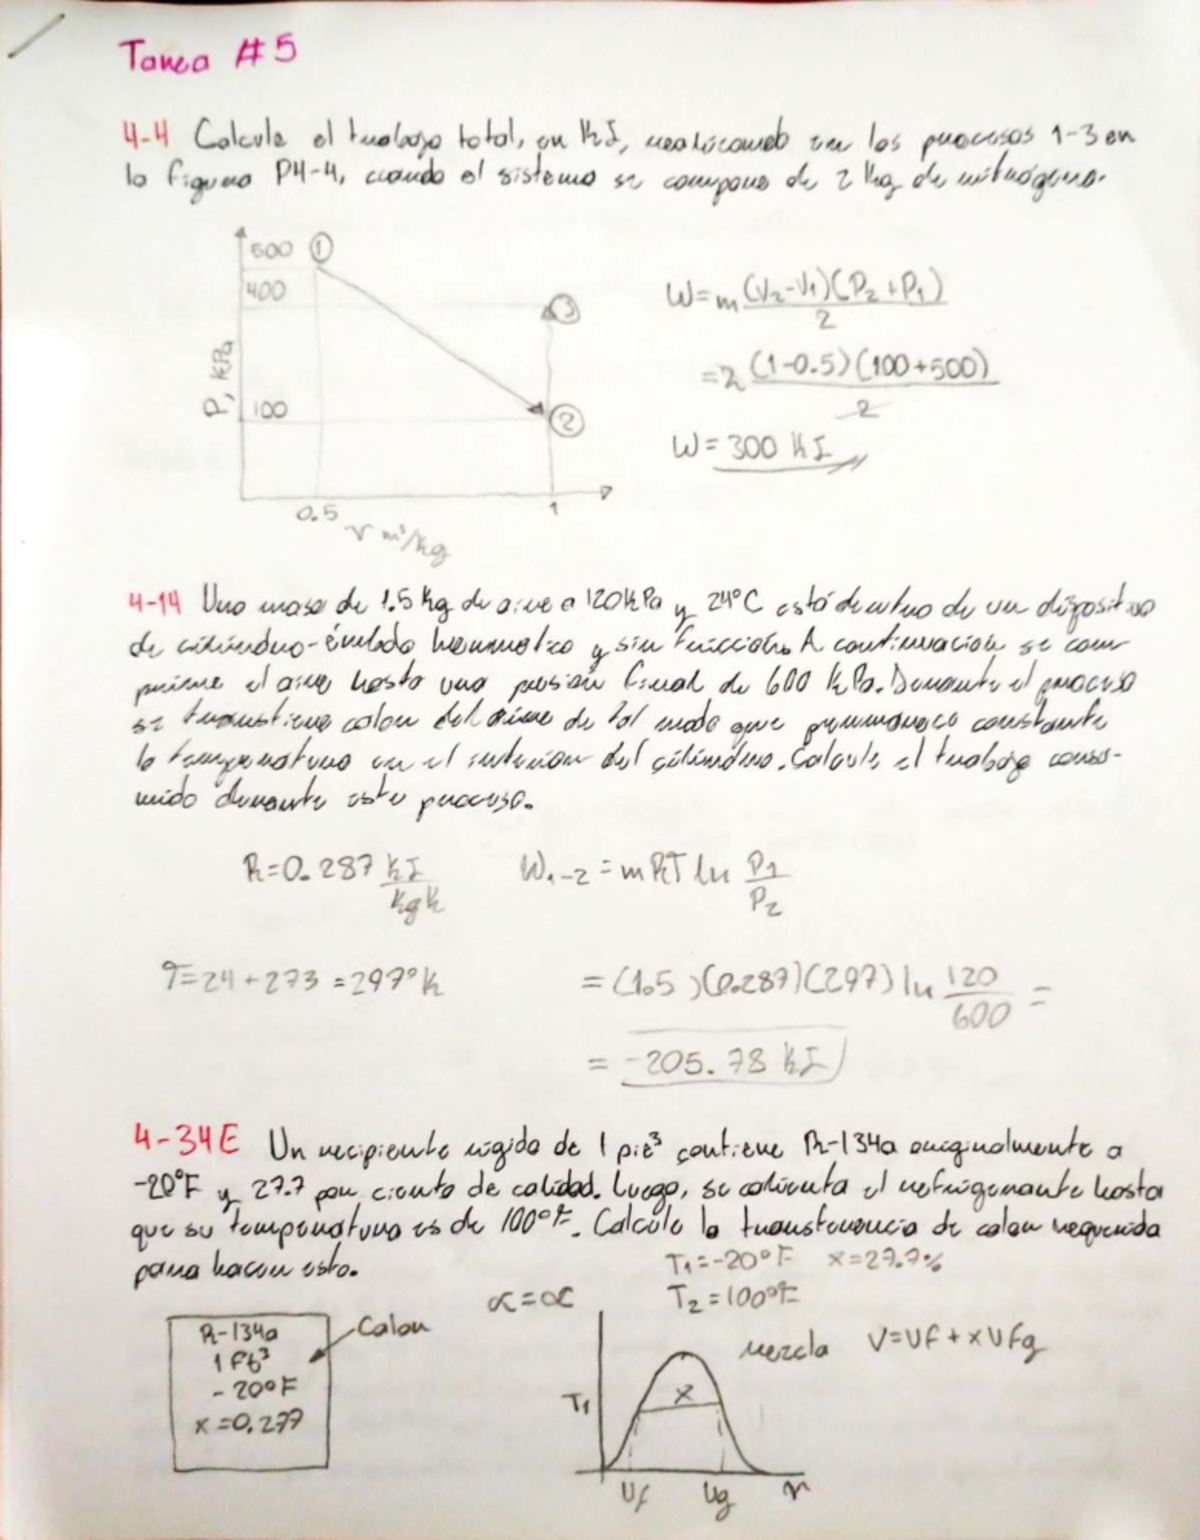 Tarea #5
4-4 Calcule el trabajo total, en kJ, realizando en los procesos 1-3 en
la figura P4-4, cuando el sistema se compone de 2 kg de nitrógeno.
500 ①
400
③
P, kPa
100
②
0.5
1
v m³/kg
W = m (V2-V1)(P2+P1)
2
= 2 (1-0.5)(100+500)
2
W = 300 kJ
4-14 Una masa de 1.5 kg de aire a 120 kPa y 24°C está dentro de un dispositivo
de cilindro-émbolo hermético y sin fricción. A continuación se com
prime el aire hasta una presión final de 600 kPa. Durante el proceso
se transfiere calor del aire de tal modo que permanece constante
la temperatura en el interior del cilindro. Calcule el trabajo consu-
mido durante este proceso.
R = 0.287 kJ
kgK
W1-2 = mRT ln P1
P2
T = 24 + 273 = 297°K
= (1.5)(0.287)(297) ln 120 =
600
= -205.78 kJ
4-34E Un recipiente rígido de 1 pie³ contiene R-134a originalmente a
-20°F y 27.7 por ciento de calidad. Luego, se calienta el refrigerante hasta
que su temperatura es de 100°F. Calcule la transferencia de calor requerida
para hacer esto.
T1 = -20°F x = 27.7%
T2 = 100°F
R-134a
1 Ft³
-20°F
x = 0.277
Calor
α = α
T1
x
Uf Ug v
mezcla V = Uf + xUfg